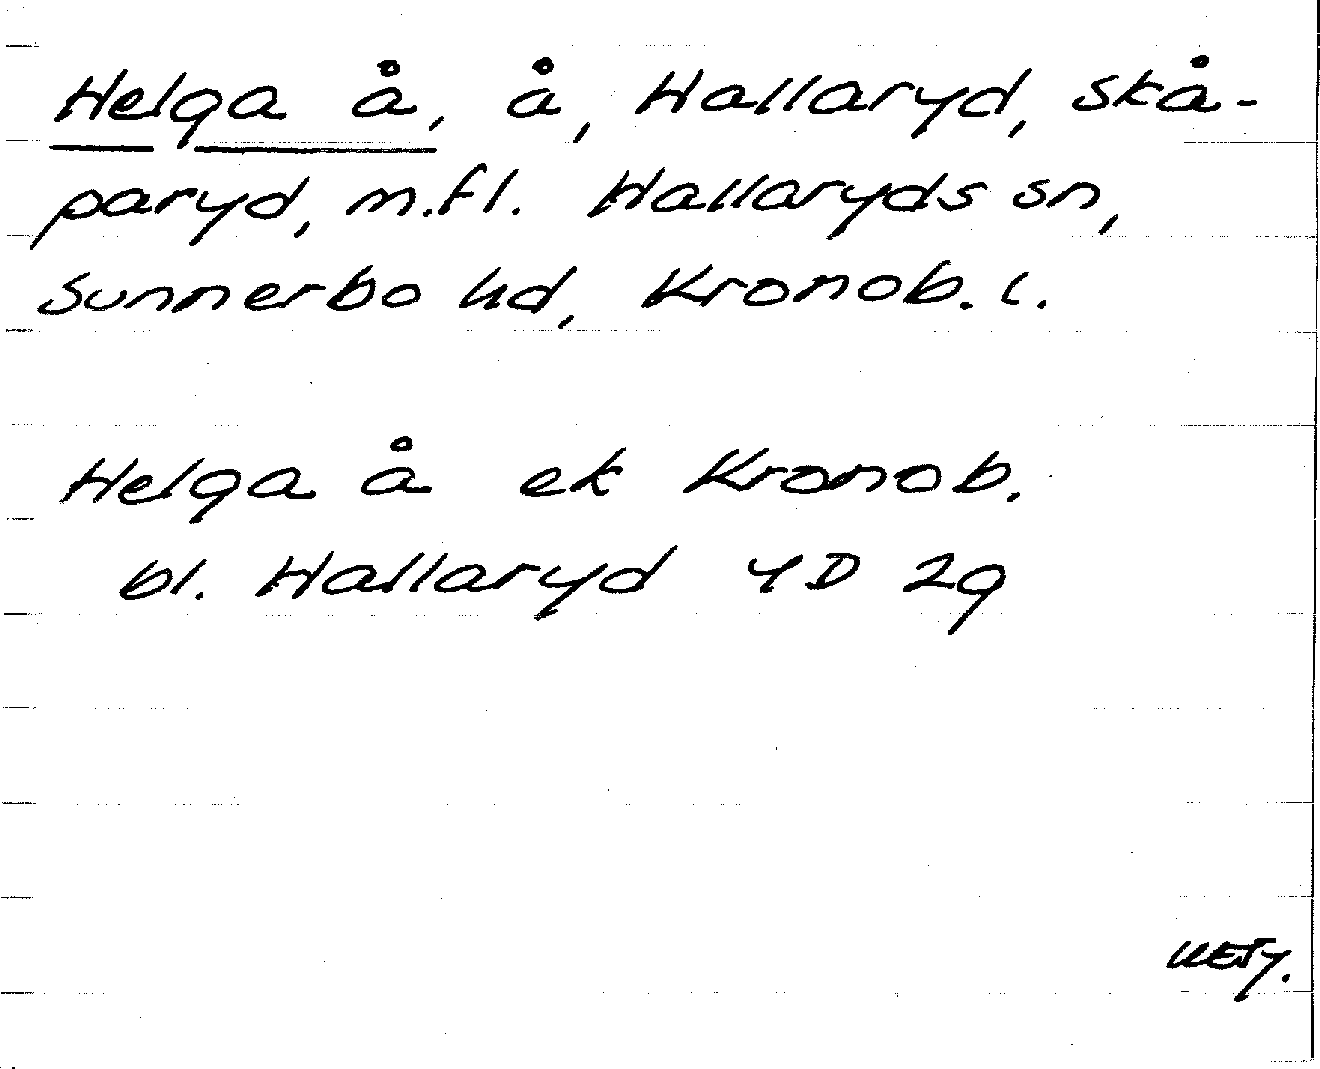 Helga å, å, Hallaryd, Skå-
paryd, m.fl. Hallaryds sn,
Sunnerbo hd, Kronob. l.
Helga å ek Kronob.
bl. Hallaryd 4D 2g